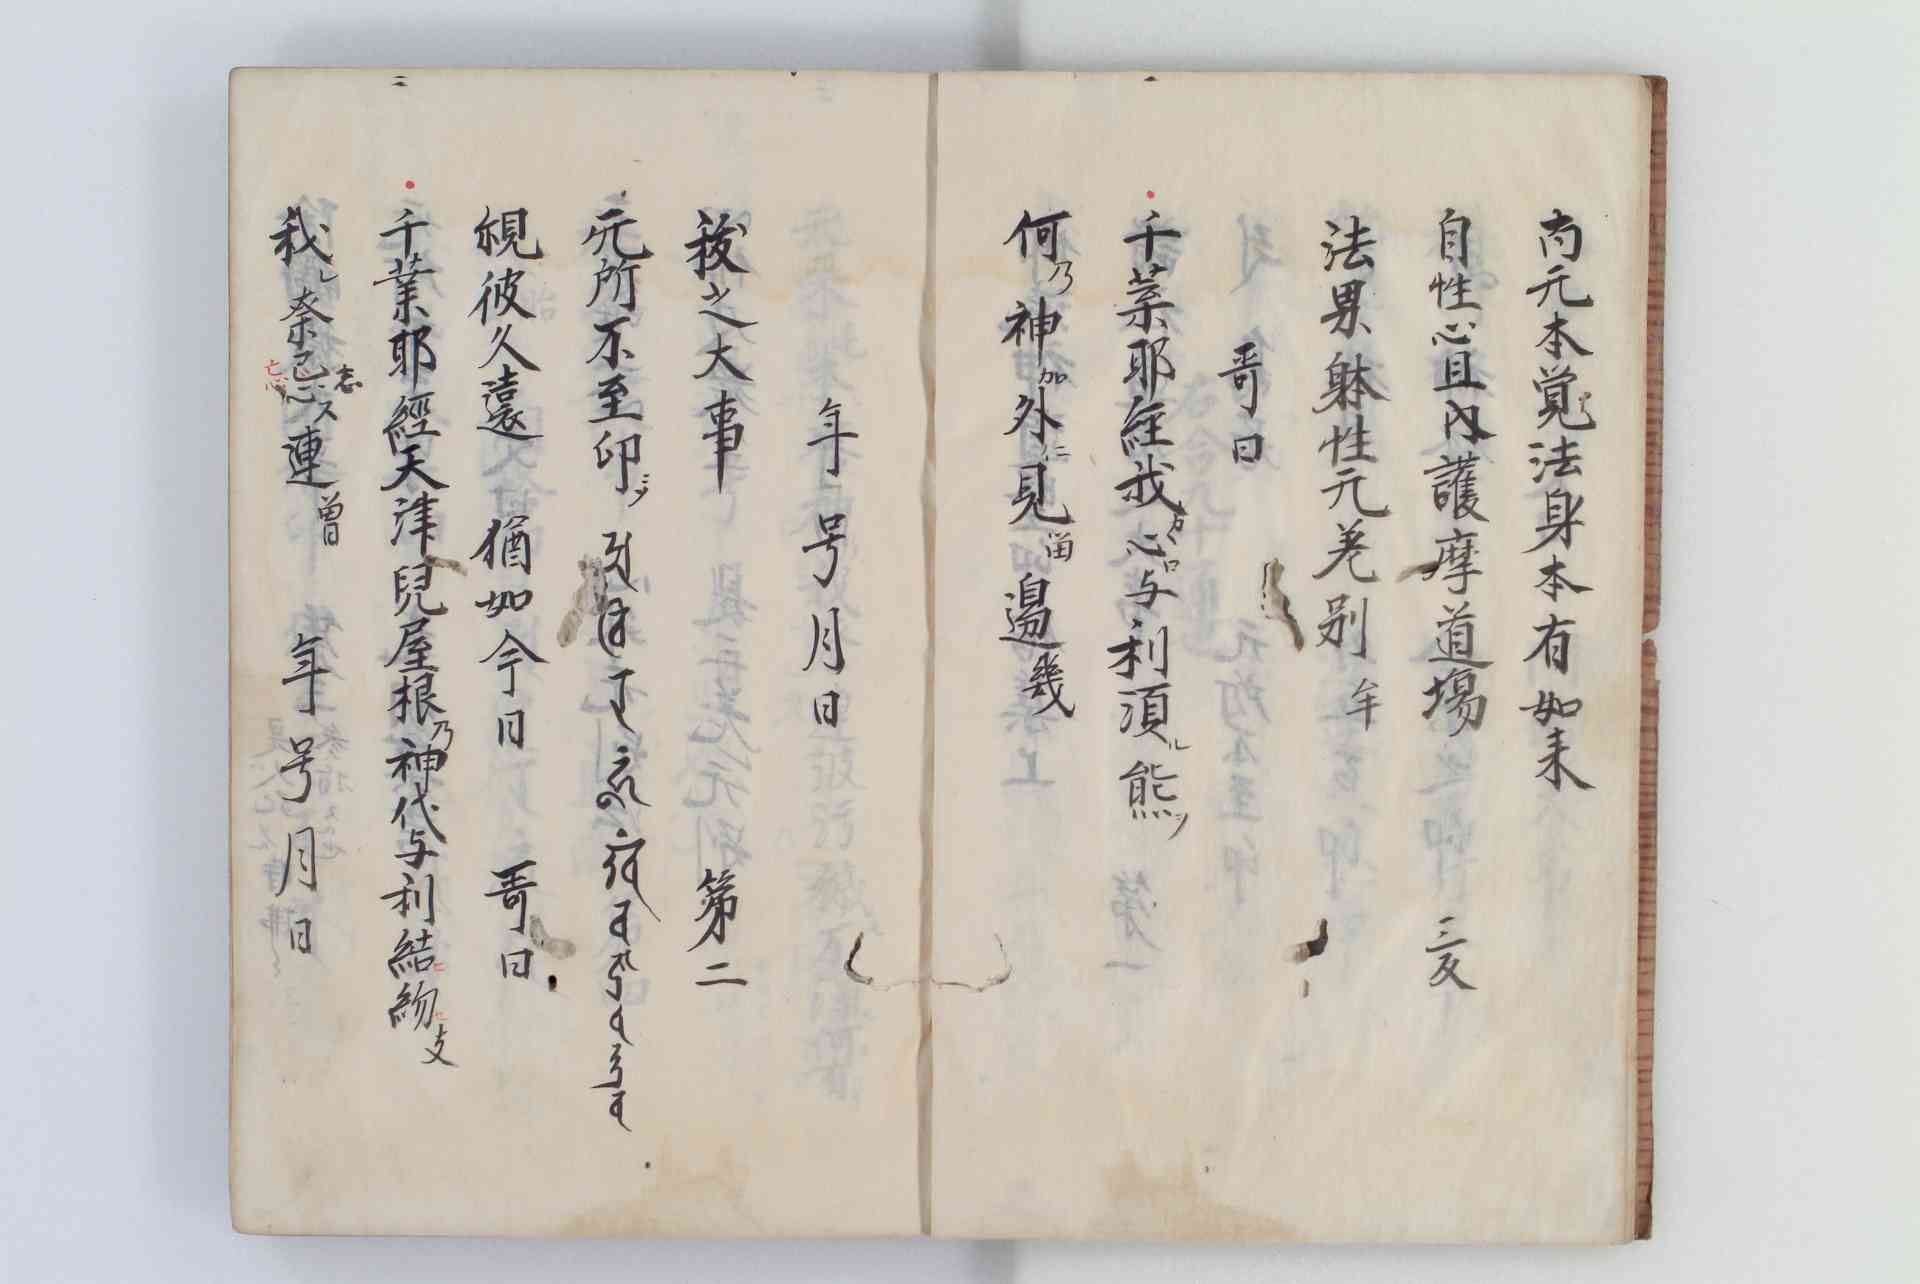 内元本覚法身本有如来
自性心且内護摩道場 三反
法界躰性元差別 年
哥曰
千葉耶經我心与利湏ル熊
何乃神加外仁見留邊幾
年号月日
祓之大事 第二
元所不至印三ツ
覩彼久遠 猶如今日 哥曰
千葉耶經天津兒屋根乃神代与利結紉支
我レ奈忘ス連曽 年号月日